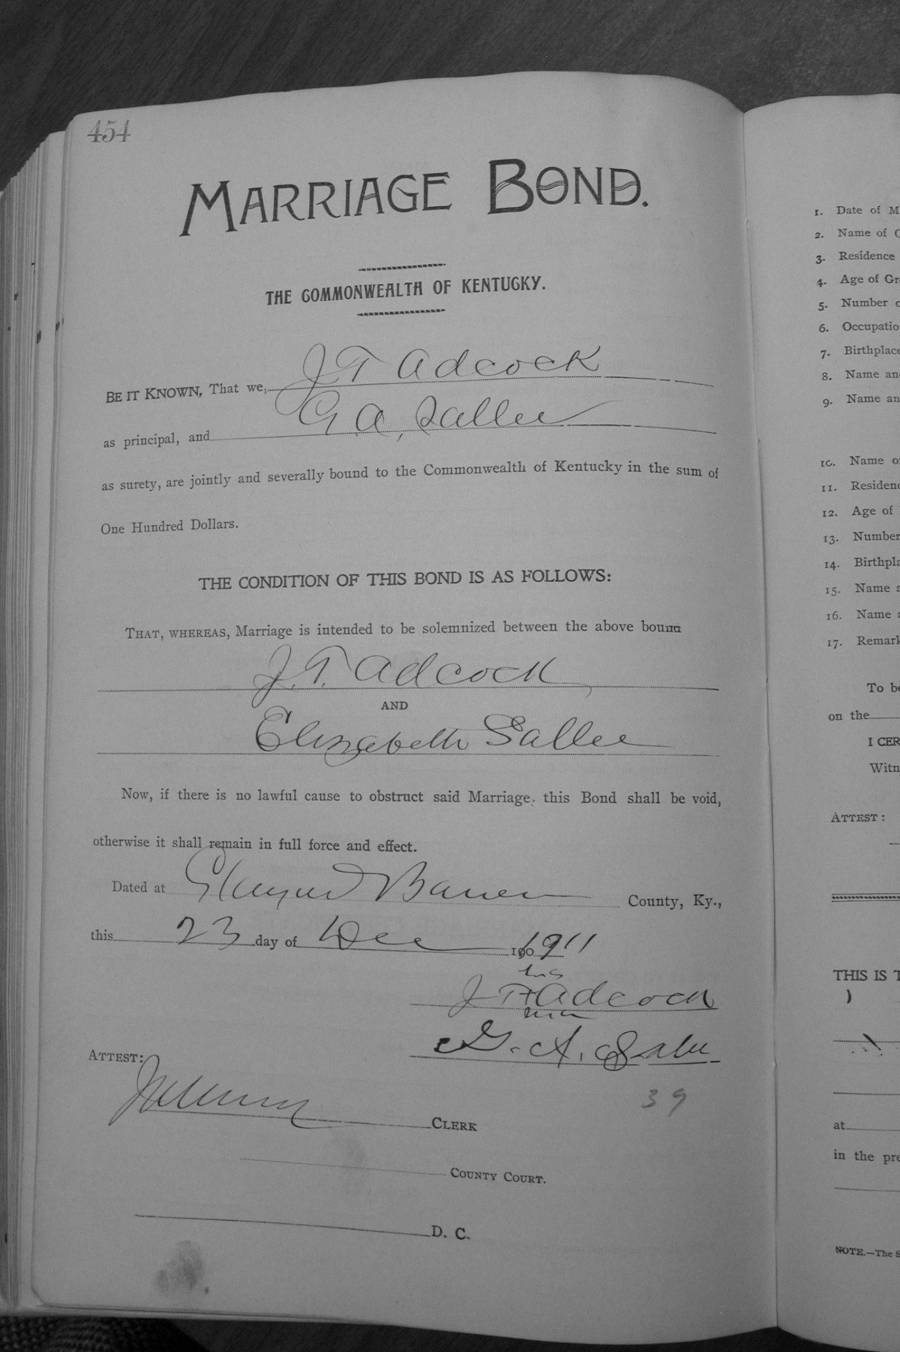 454
MARRIAGE BOND.
THE COMMONWEALTH OF KENTUCKY.
BE IT KNOWN, That we, J T Adcock
as principal, and G. A. Sallee
as surety, are jointly and severally bound to the Commonwealth of Kentucky in the sum of
One Hundred Dollars.
THE CONDITION OF THIS BOND IS AS FOLLOWS:
THAT, WHEREAS, Marriage is intended to be solemnized between the above bound
J. T. Adcock
AND
Elizabeth Sallee
Now, if there is no lawful cause to obstruct said Marriage, this Bond shall be void,
otherwise it shall remain in full force and effect.
Dated at Glasgow Barren County, Ky.,
this 23 day of Dec 1911
his
J T + Adcock
G. A. Sallee
ATTEST:
39
CLERK
COUNTY COURT.
D. C.
1. Date of M
2. Name of G
3. Residence
4. Age of Gr
5. Number o
6. Occupatio
7. Birthplace
8. Name an
9. Name an
10. Name o
11. Residenc
12. Age of
13. Number
14. Birthpla
15. Name a
16. Name a
17. Remark
To be
on the
I CER
Witn
ATTEST:
THIS IS T
at
in the pre
NOTE.—The S